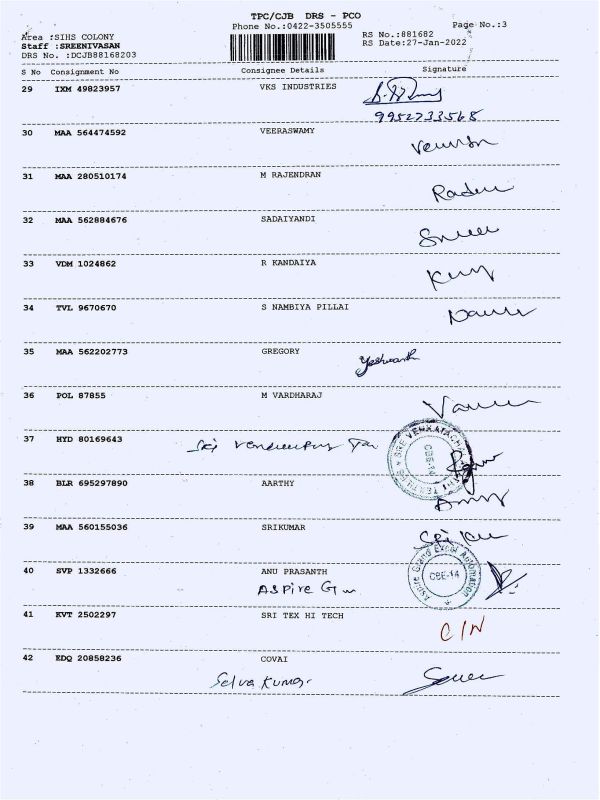 TPC/CJB DRS - PCO
Phone No.:0422-3505555
Page No.:3
Area :SIHS COLONY
Staff :SREENIVASAN
DRS No. :DCJB88168203
RS No.:881682
RS Date:27-Jan-2022
S No Consignment No Consignee Details Signature
29 IXM 49823957 VKS INDUSTRIES
9952733568
30 MAA 564474592 VEERASWAMY
31 MAA 280510174 M RAJENDRAN
32 MAA 562884676 SADAIYANDI
33 VDM 1024862 R KANDAIYA
34 TVL 9670670 S NAMBIYA PILLAI
35 MAA 562202773 GREGORY
Yeshwanth
36 POL 87855 M VARDHARAJ
37 HYD 80169643
CBE-14
38 BLR 695297890 AARTHY
39 MAA 560155036 SRIKUMAR
40 SVP 1332666 ANU PRASANTH
Aspire Grand Excel Automation
CBE-14
ASPire
41 KVT 2502297 SRI TEX HI TECH
C/N
42 EDQ 20858236 COVAI
Selva Kumar